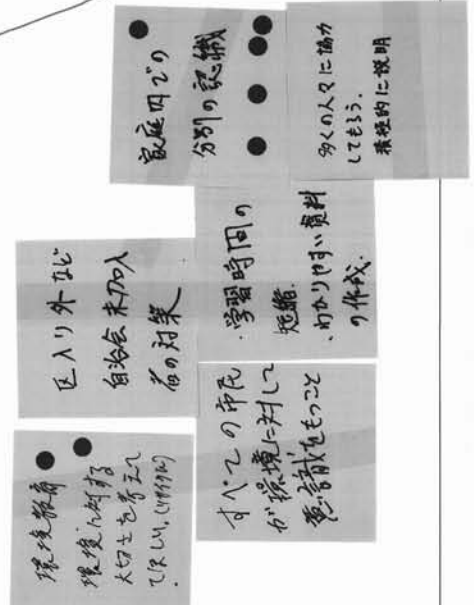 家庭内での
分別の認識
多くの人々に協力
してもらう.
積極的に説明
区入り外など
自治会未加入
者の対策
・学習時間の
短縮.
、わかりやすい資料
の作成.
環境教育
環境に対する
大切さを考えて
てほしい.(リサイクル)
すべての市民
が環境に対して
意識をもつこと